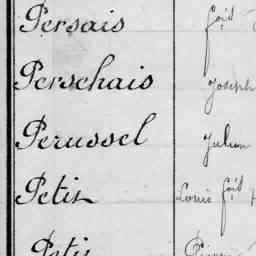 Persais foid
Perschais Joseph
Perussel Julien
Petit Louis foid
Petit Pierre